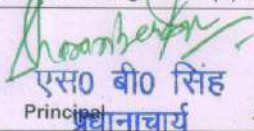 एस0 बी0 सिंह
Principal
प्रधानाचार्य